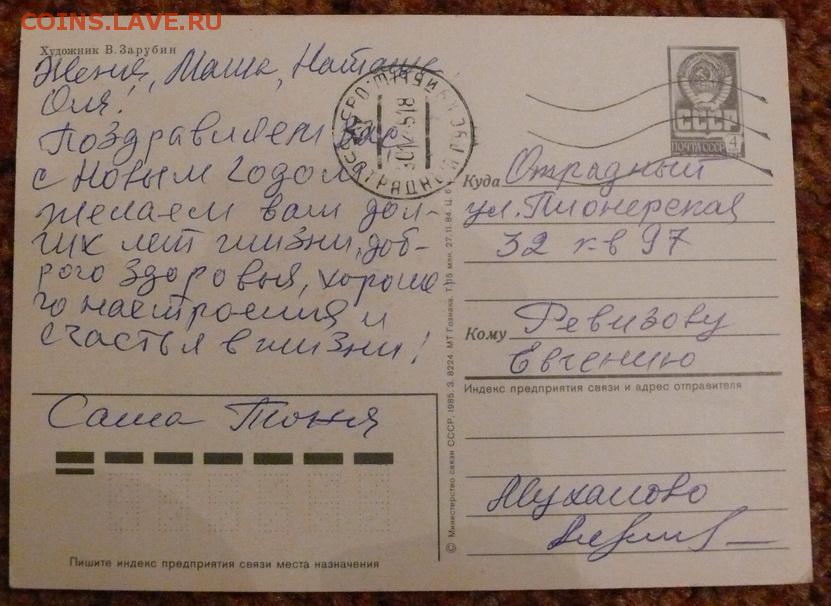 COINS.LAVE.RU
Художник В. Зарубин
Женя, Маша, Наташа,
Оля!
Поздравляем вас
с Новым Годом
желаем вам дол-
гих лет жизни, доб-
рого здоровья, хороше
го настроения и
счастья в жизни!
Саша Тоня
Пишите индекс предприятия связи места назначения
© Министерство связи СССР, 1985. З. 8224. МТ Гознака. Т. 15 млн. 27.11.84. Ц.
СССР
ПОЧТА СССР 4
Куда Отрадный
ул. Пионерская
32 кв 97
Кому Ревизову
Евгению
Индекс предприятия связи и адрес отправителя